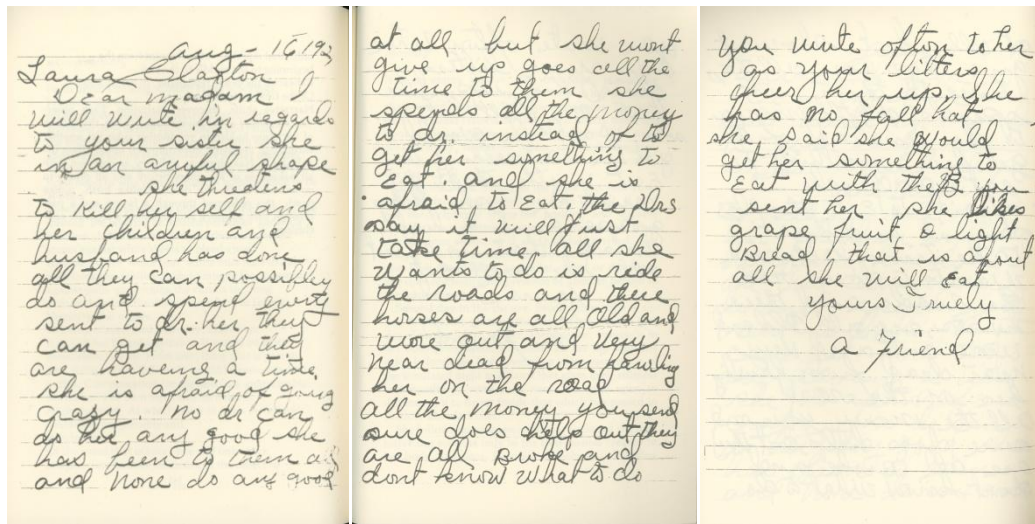 Aug - 16 192
Laura Clayton
Dear Madam I
will write in regards
to your sister she
in an awful shape
she threatens
to Kill her self and
her children and
husband has done
all they can possibley
do and spend every
sent to dr. her they
can get and they
are haveing a time
she is afraid of going
crazy. No dr can
do her any good she
has been to them all
and none do any good
at all but she wont
give up goes all the
time to them she
spends all the money
to dr. instead of to
get her something to
Eat. and she is
afraid to Eat. the Drs
say it will just
take time all she
wants to do is ride
the roads and there
horses are all old and
wore out and very
near dead from hawling
her on the road
all the money you send
sure does help out they
are all Broke and
dont know what to do
you write ofton to her
as your letters
cheer her up. She
has no fall hat
she said she would
get her something to
Eat with the you
sent her she likes
grape fruit & light
Bread, that is about
all she will Eat
yours Truely
a Friend